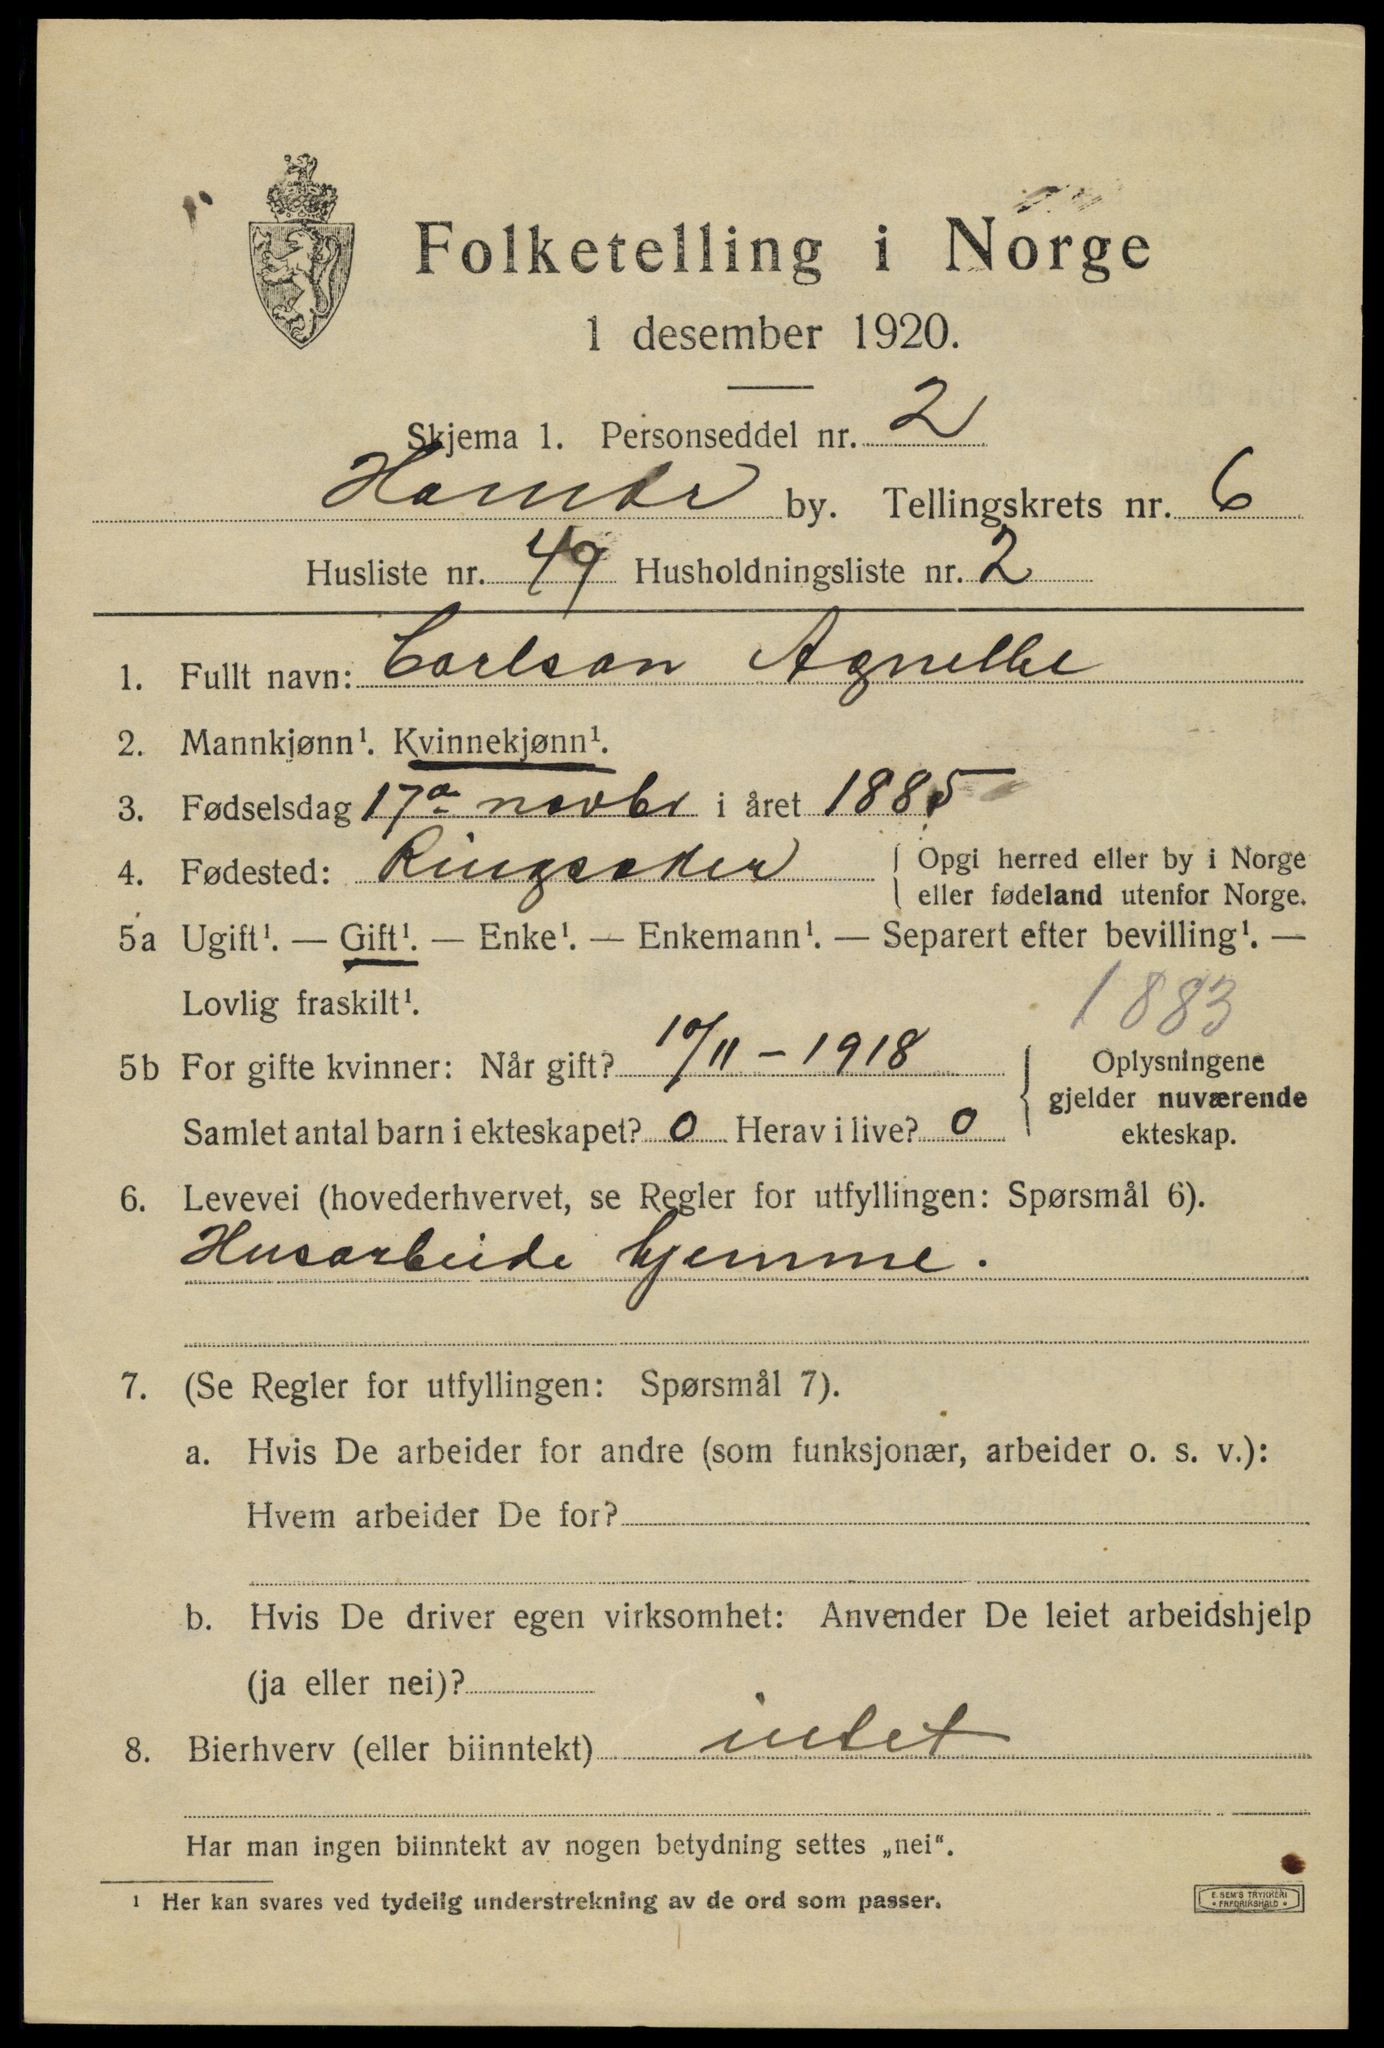 Folketelling i Norge
1 desember 1920.
Skjema 1. Personseddel nr. 2
Hamar by. Tellingskrets nr. 6
Husliste nr. 49 Husholdningsliste nr. 2
1. Fullt navn: Carlson Agnethe
2. Mannkjønn¹. Kvinnekjønn¹.
3. Fødselsdag 17de novbr i året 1885
4. Fødested: Ringsaker { Opgi herred eller by i Norge
eller fødeland utenfor Norge.
5a Ugift¹. — Gift¹. — Enke¹. — Enkemann¹. — Separert efter bevilling¹. —
Lovlig fraskilt¹.
1883
5b For gifte kvinner: Når gift? 10/11 – 1918
Samlet antal barn i ekteskapet? 0 Herav i live? 0
{ Oplysningene
gjelder nuværende
ekteskap.
6. Levevei (hovederhvervet, se Regler for utfyllingen: Spørsmål 6).
Husarbeide hjemme.
7. (Se Regler for utfyllingen: Spørsmål 7).
a. Hvis De arbeider for andre (som funksjonær, arbeider o. s. v.):
Hvem arbeider De for?
b. Hvis De driver egen virksomhet: Anvender De leiet arbeidshjelp
(ja eller nei)?
8. Bierhverv (eller biinntekt) intet
Har man ingen biinntekt av nogen betydning settes „nei".
¹ Her kan svares ved tydelig understrekning av de ord som passer.
E. SEM'S TRYKKERI
* FREDRIKSHALD *